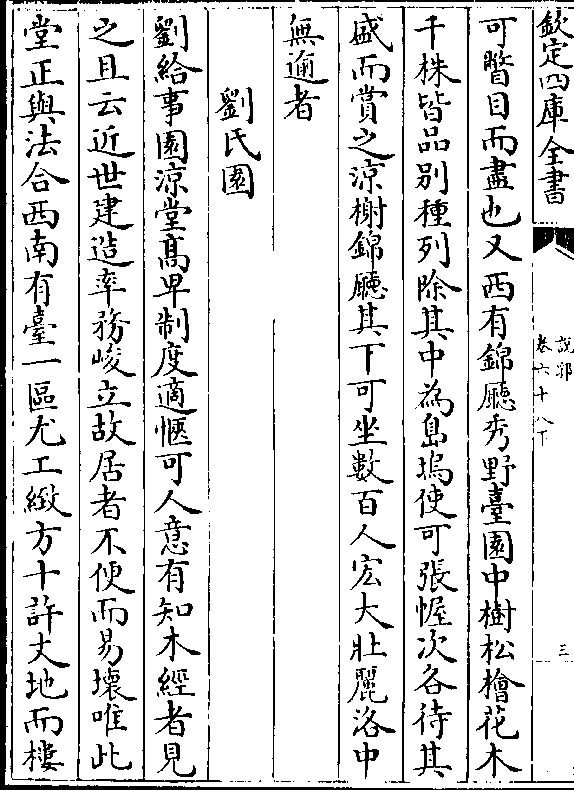 欽定四庫全書
說郛
卷六十八下
三
可瞥目而盡也又西有錦廳秀野臺園中樹松檜花木
千株皆品别種列除其中為島塢使可張幄次各待其
盛而賞之涼榭錦廳其下可坐數百人宏大壯麗洛中
無逾者
劉氏園
劉給事園涼堂髙卑制度適愜可人意有知木經者見
之且云近世建造率務峻立故居者不便而易壞唯此
堂正與法合西南有臺一區尤工緻方十許丈地而樓